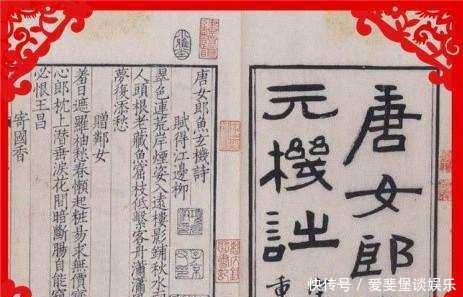 唐女郎
元機詩
重
唐女郎魚玄機詩
賦得江邊柳
翠色連荒岸煙姿入遠樓影鋪秋水
人頭根老藏魚窟枝低繫客舟瀟瀟
夢復添愁
贈鄰女
羞日遮羅袖愁春懶起粧易求無價寶
心郎枕上潛垂淚花間暗斷腸自能窺
必恨王昌
寄國香
快传号 / 爱斐堡谈娱乐